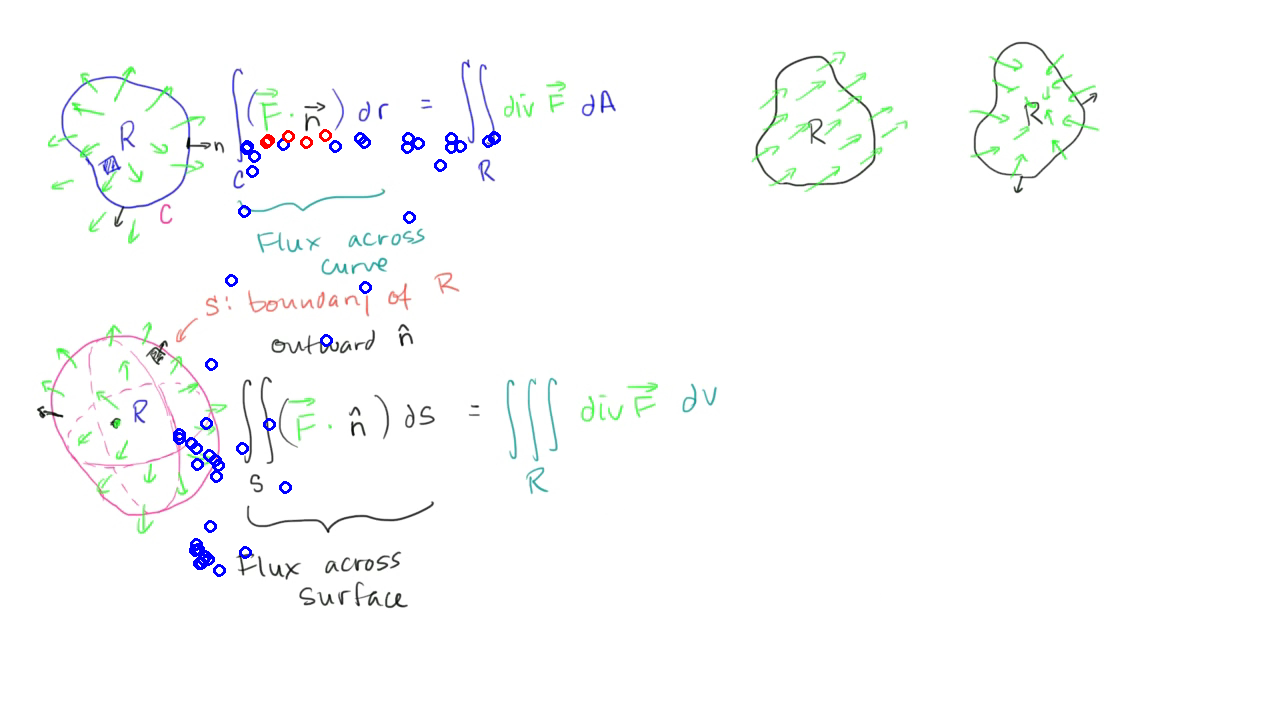 ∫ (F⃗ · n⃗) dr = ∬ div F⃗ dA
C R
R
n
C
Flux across
curve
R
R
S: boundary of R
outward n̂
R
∬ (F⃗ · n̂) ds = ∭ div F⃗ dv
S R
Flux across
surface